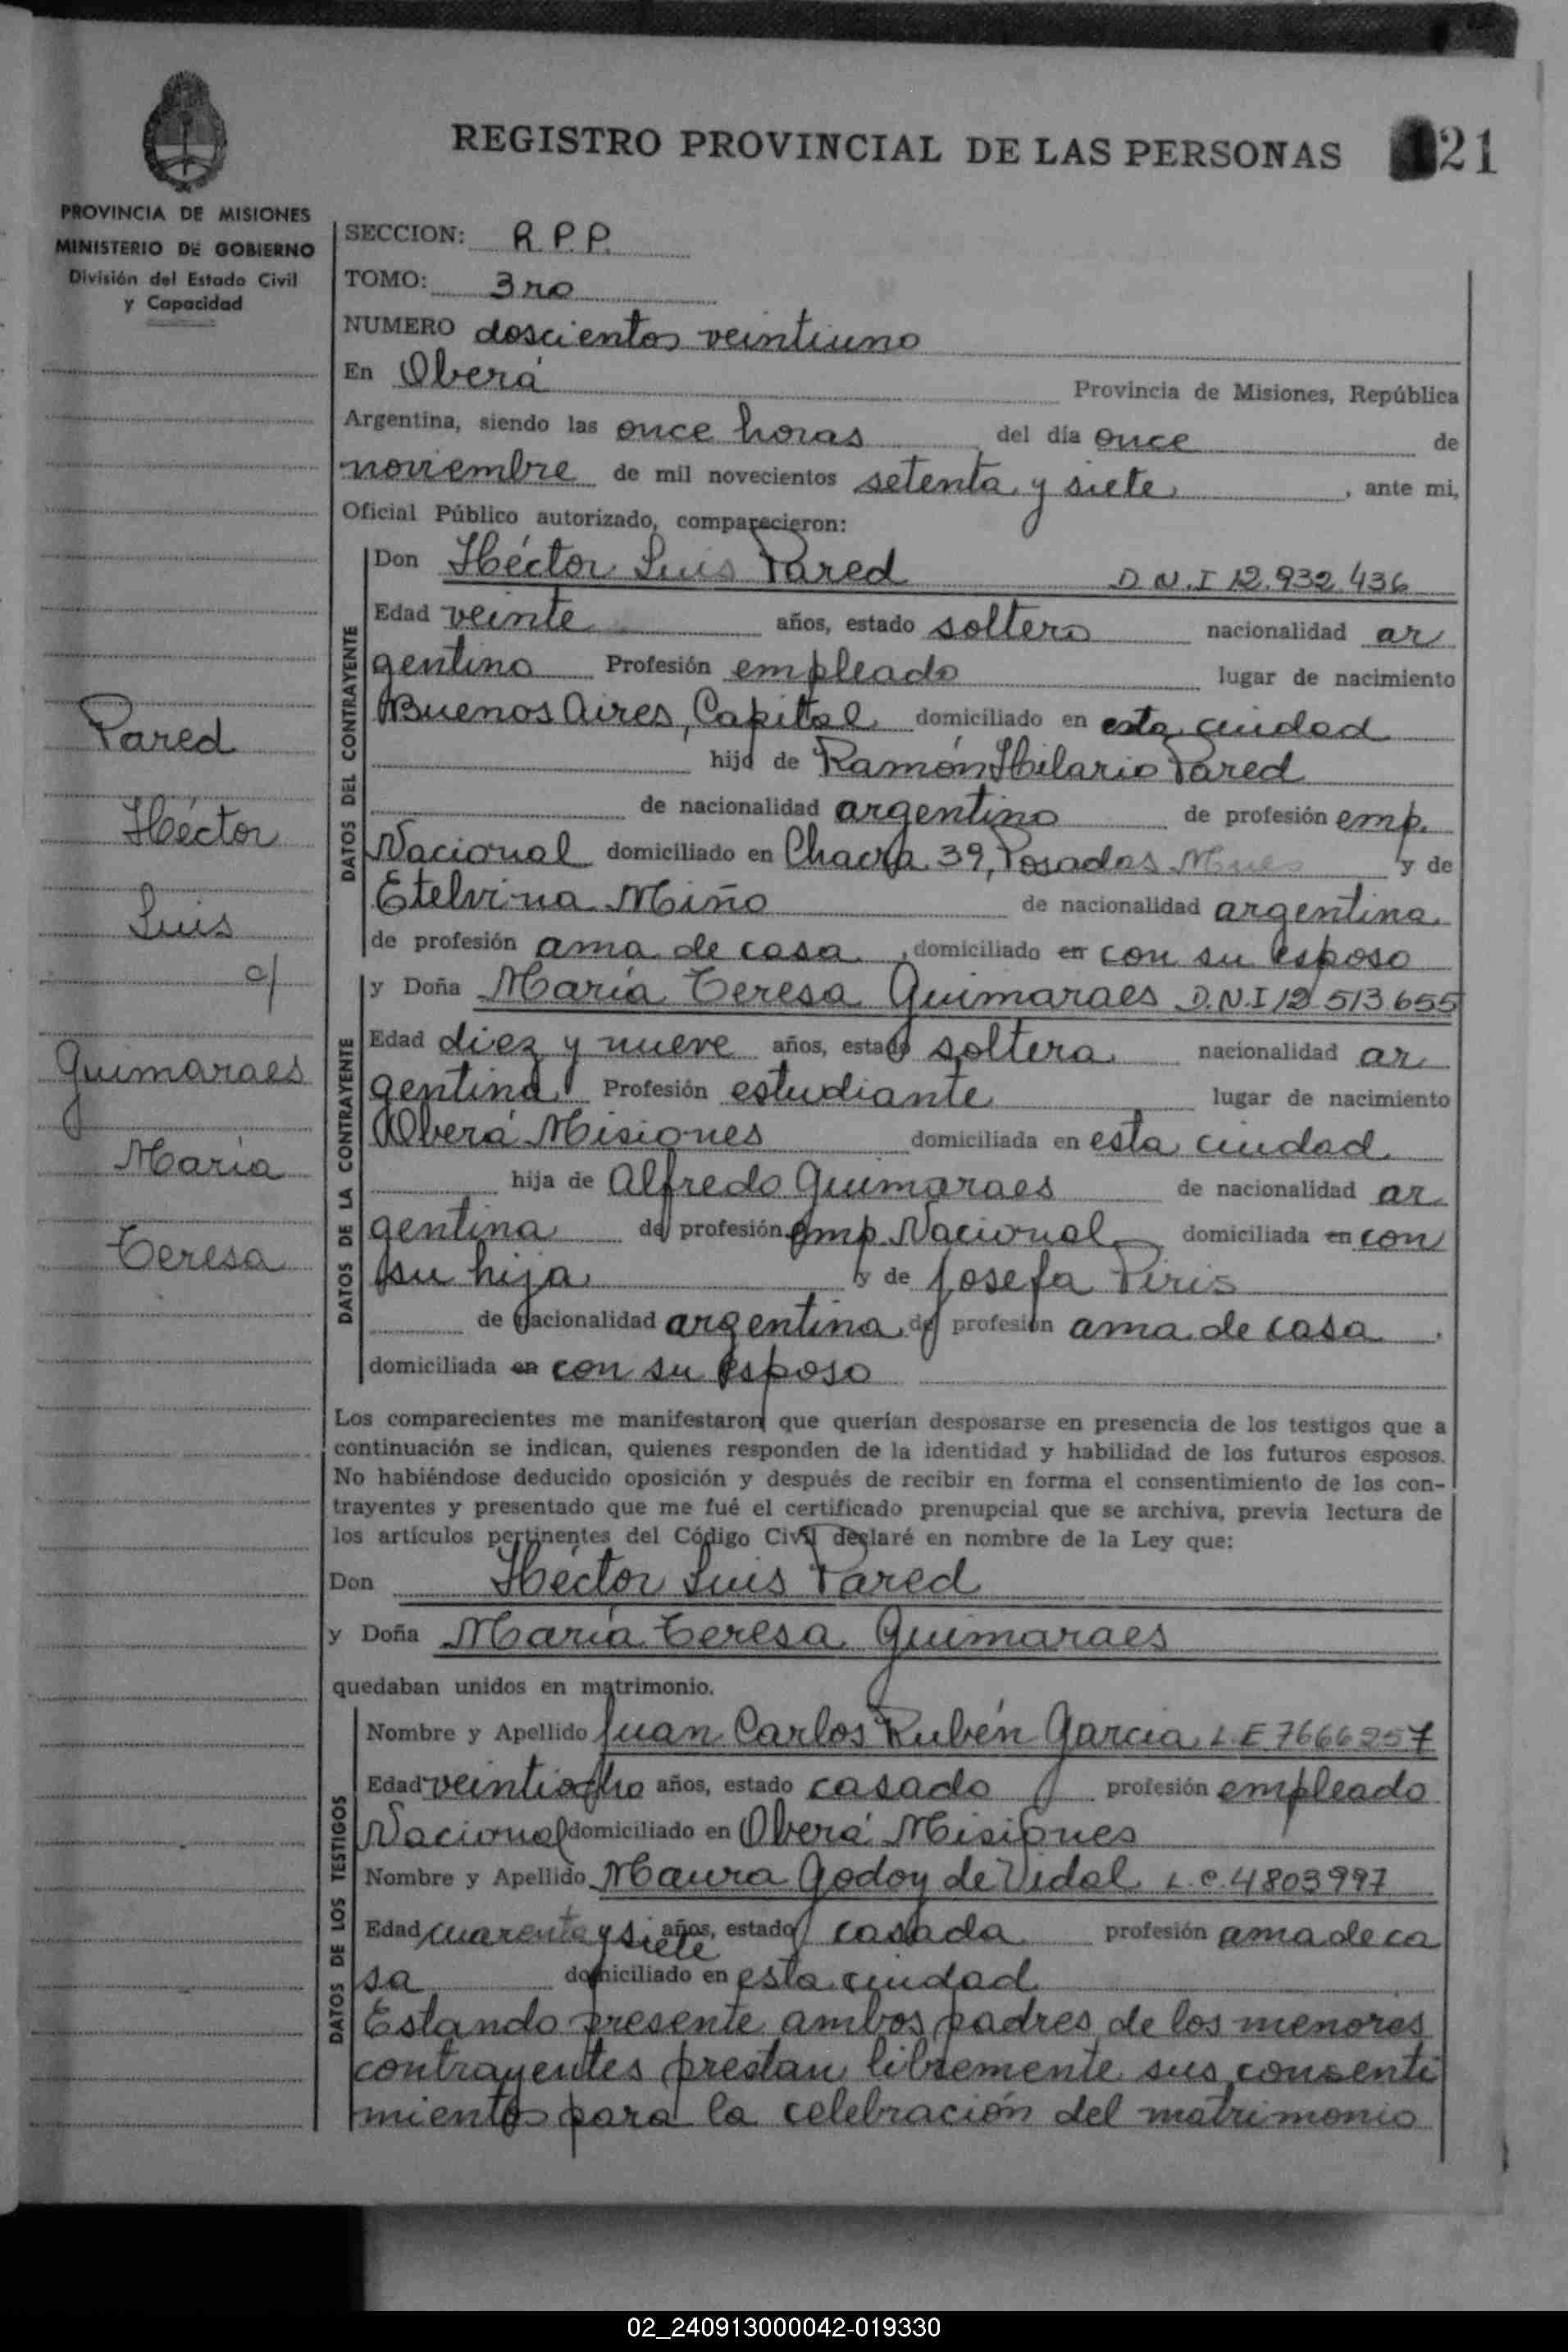 REGISTRO PROVINCIAL DE LAS PERSONAS 21
PROVINCIA DE MISIONES
MINISTERIO DE GOBIERNO
División del Estado Civil
y Capacidad
Pared
Héctor
Luis
c/
Guimaraes
María
Teresa
SECCION: R.P.P.
TOMO: 3ro
NUMERO doscientos veintiuno
En Oberá Provincia de Misiones, República
Argentina, siendo las once horas del día once de
noviembre de mil novecientos setenta y siete, ante mi,
Oficial Público autorizado, comparecieron:
DATOS DEL CONTRAYENTE
Don Héctor Luis Pared D.N.I 12.932.436
Edad veinte años, estado soltero nacionalidad ar
gentino Profesión empleado lugar de nacimiento
Buenos Aires, Capital domiciliado en esta ciudad
hijo de Ramón Hilario Pared
de nacionalidad argentino de profesión emp.
Nacional domiciliado en Chacra 39, Posadas Mnes y de
Etelvina Miño de nacionalidad argentina
de profesión ama de casa, domiciliado en con su esposo
DATOS DE LA CONTRAYENTE
y Doña María Teresa Guimaraes D.N.I 12 513.655
Edad diez y nueve años, estado soltera nacionalidad ar
gentina Profesión estudiante lugar de nacimiento
Oberá Misiones domiciliada en esta ciudad
hija de Alfredo Guimaraes de nacionalidad ar
gentina de profesión emp. Nacional domiciliada en con
su hija y de Josefa Piris
de nacionalidad argentina de profesión ama de casa.
domiciliada en con su esposo
Los comparecientes me manifestaron que querían desposarse en presencia de los testigos que a
continuación se indican, quienes responden de la identidad y habilidad de los futuros esposos.
No habiéndose deducido oposición y después de recibir en forma el consentimiento de los con-
trayentes y presentado que me fué el certificado prenupcial que se archiva, previa lectura de
los artículos pertinentes del Código Civil declaré en nombre de la Ley que:
Don Héctor Luis Pared
y Doña María Teresa Guimaraes
quedaban unidos en matrimonio.
DATOS DE LOS TESTIGOS
Nombre y Apellido Juan Carlos Rubén Garcia L.E 7666257
Edad veintiocho años, estado casado profesión empleado
Nacional domiciliado en Oberá Misiones
Nombre y Apellido Maura Godoy de Vidal L.C. 4803997
Edad cuarenta y siete años, estado casada profesión ama de ca
sa domiciliado en esta ciudad
Estando presente ambos padres de los menores
contrayentes prestan libremente sus consenti
mientos para la celebración del matrimonio
02_240913000042-019330